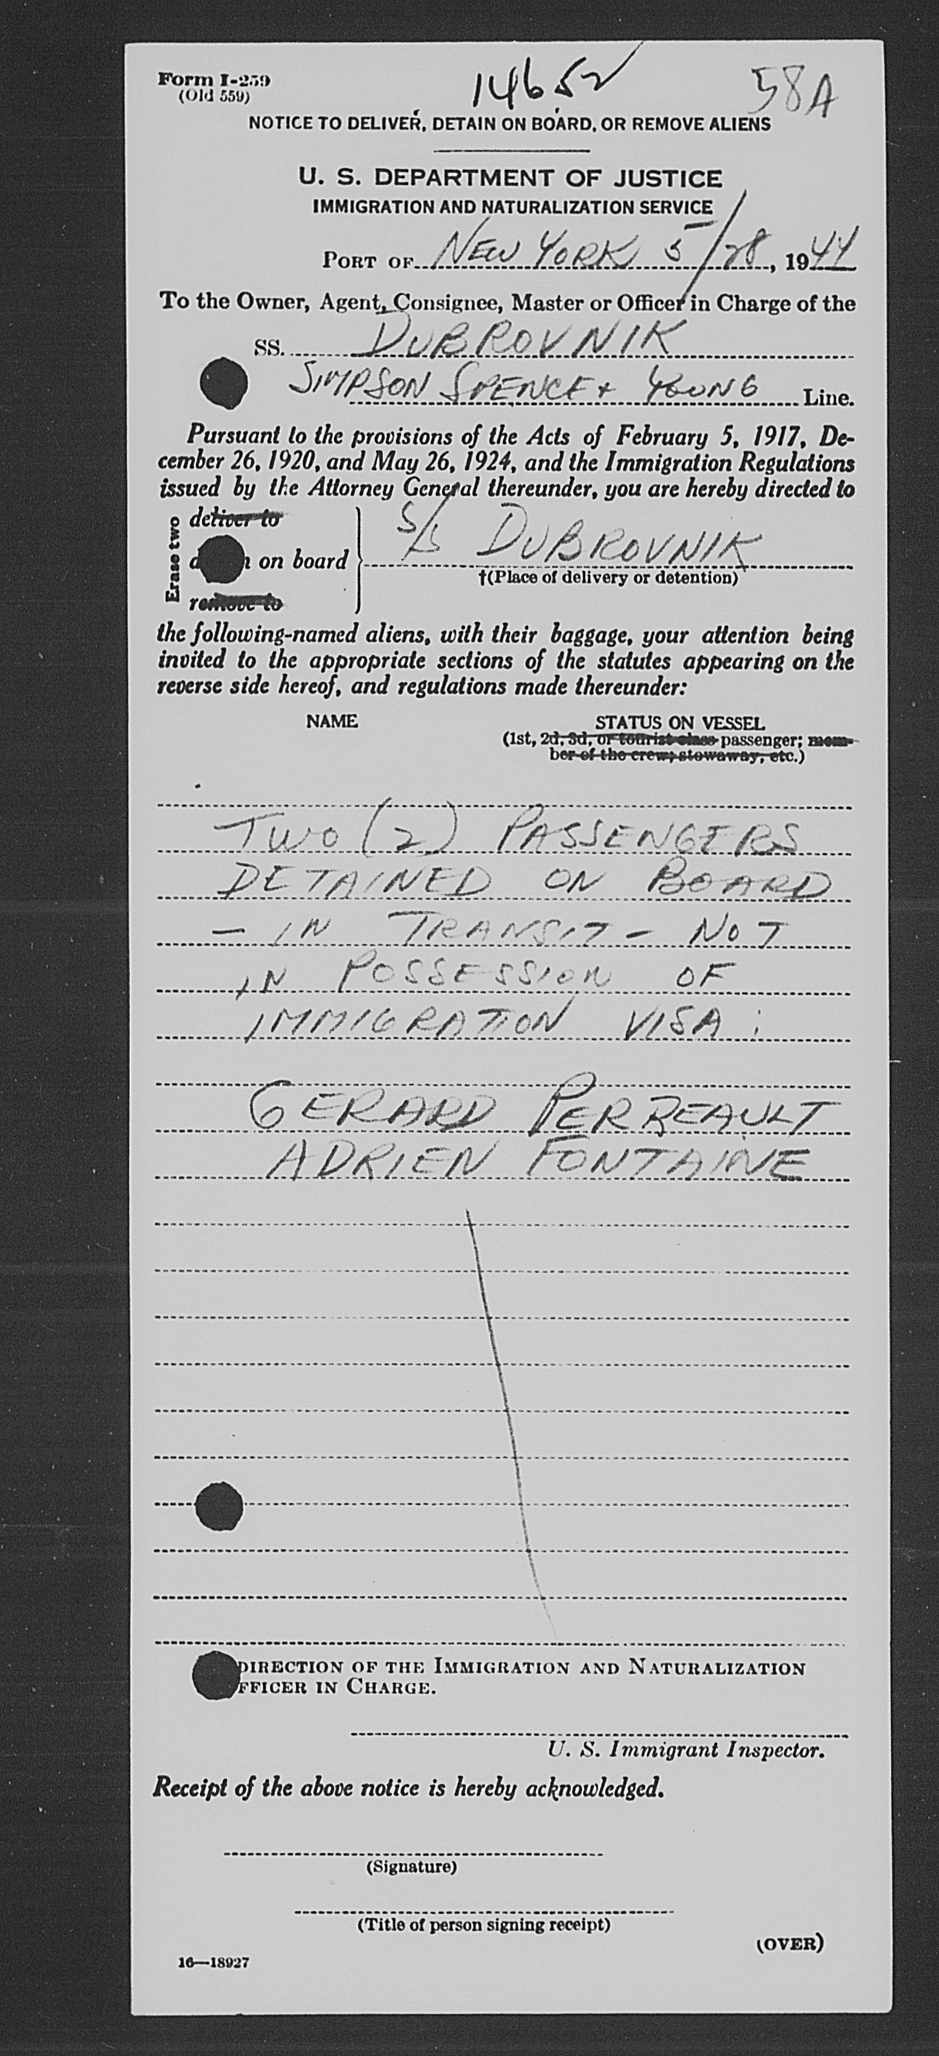 Form I-259
(Old 559)
14652
58A
NOTICE TO DELIVER, DETAIN ON BOARD, OR REMOVE ALIENS
U. S. DEPARTMENT OF JUSTICE
IMMIGRATION AND NATURALIZATION SERVICE
PORT OF NEW YORK 5/28, 1944
To the Owner, Agent, Consignee, Master or Officer in Charge of the
SS. DUBROVNIK
SIMPSON SPENCE + YOUNG Line.
Pursuant to the provisions of the Acts of February 5, 1917, De-
cember 26, 1920, and May 26, 1924, and the Immigration Regulations
issued by the Attorney General thereunder, you are hereby directed to
Erase two
deliver to
on board
remove to
S/S DUBROVNIK
†(Place of delivery or detention)
the following-named aliens, with their baggage, your attention being
invited to the appropriate sections of the statutes appearing on the
reverse side hereof, and regulations made thereunder:
NAME STATUS ON VESSEL
(1st, 2d, 3d, or tourist class passenger; mem-
ber of the crew; stowaway, etc.)
TWO (2) PASSENGERS
DETAINED ON BOARD
- IN TRANSIT - NOT
IN POSSESSION OF
IMMIGRATION VISA :
GERARD PERREAULT
ADRIEN FONTAINE
DIRECTION OF THE IMMIGRATION AND NATURALIZATION
FFICER IN CHARGE.
U. S. Immigrant Inspector.
Receipt of the above notice is hereby acknowledged.
(Signature)
(Title of person signing receipt)
(OVER)
16—18927